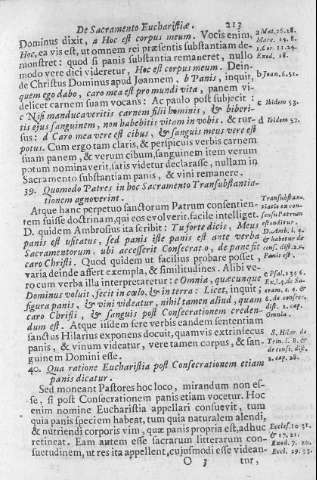 De Sacramento Eucharistiæ. 213
Dominus dixit, a Hoc est corpus meum. Vocis enim,
Hoc, ea vis est, ut omnem rei præsentis substantiam de-
monstret: quod si panis substantia remaneret, nullo
modo vere dici videretur, Hoc est corpus meum. Dein-
de Christus Dominus apud Joannem. b Panis, inquit,
quem ego dabo, caro mea est pro mundi vita, panem vi-
delicet carnem suam vocans: Ac paulo post subjicit:
c Nisi manducaveritis carnem filii hominis, & biberi-
tis ejus sanguinem, non habebitis vitam in vobis, & rur-
sus: d Caro mea vere est cibus, & sanguis meus vere est
potus. Cum ergo tam claris, & perspicuis verbis carnem
suam panem, & verum cibum, sanguinem item verum
potum nominaverit, satis videtur declarasse, nullam in
Sacramento substantiam panis, & vini remanere.
39. Quomodo Patres in hoc Sacramento Transubstantia-
tionem agnoverint.
Atque hanc perpetuo sanctorum Patrum consentien-
tem fuisse doctrinam, qui eos evolverit, facile intelliget.
D. quidem Ambrosius ita scribit: Tu forte dicis, Meus
panis est usitatus, sed panis iste panis est ante verba
Sacramentorum, ubi accesserit Consecratio, de pane fit
caro Christi. Quod quidem ut facilius probare posset,
varia deinde affert exempla, & similitudines. Alibi ve-
ro cum verba illa interpretaretur: e Omnia, quæcunque
Dominus voluit, fecit in cœlo, & in terra: Licet, inquit,
figura panis, & vini videatur, nihil tamen aliud, quam
caro Christi, & sanguis post Consecrationem creden-
dum est. Atque iisdem fere verbis eandem sententiam
sanctus Hilarius exponens docuit, quamvis extrinsecus
panis, & vinum videatur, vere tamen corpus, & san-
guinem Domini esse.
40. Qua ratione Eucharistia post Consecrationem etiam
panis dicatur.
Sed moneant Pastores hoc loco, mirandum non es-
se, si post Consecrationem panis etiam vocetur. Hoc
enim nomine Eucharistia appellari consuevit, tum
quia panis speciem habeat, tum quia naturalem alendi,
& nutriendi corporis vim, quæ panis propria est, adhuc
retineat. Eam autem esse sacrarum litterarum con-
suetudinem, ut res ita appellent, cujusmodi esse videan-
O 3 tur,
a Mat. 26. 28.
Marc. 14.
1. Cor. 11. 24.
Exod. 18.
b Joan. 6. 51.
c Ibidem 53.
d Ibidem 55.
Transubstan-
Panis est.
Omnia.
S. Hilar. de
Trin. l. 8. &
de consec. dist.
2. cap. 28.
& 17. 21.
Exod. 7. 10.